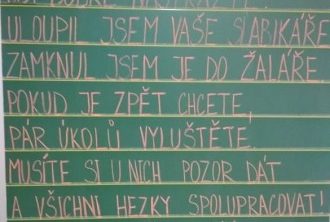 ULOUPIL JSEM VAŠE SLABIKÁŘE
ZAMKNUL JSEM JE DO ŽALÁŘE.
POKUD JE ZPĚT CHCETE,
PÁR ÚKOLŮ VYLUŠTĚTE.
MUSÍTE SI U NICH POZOR DÁT
A VŠICHNI HEZKY SPOLUPRACOVAT!